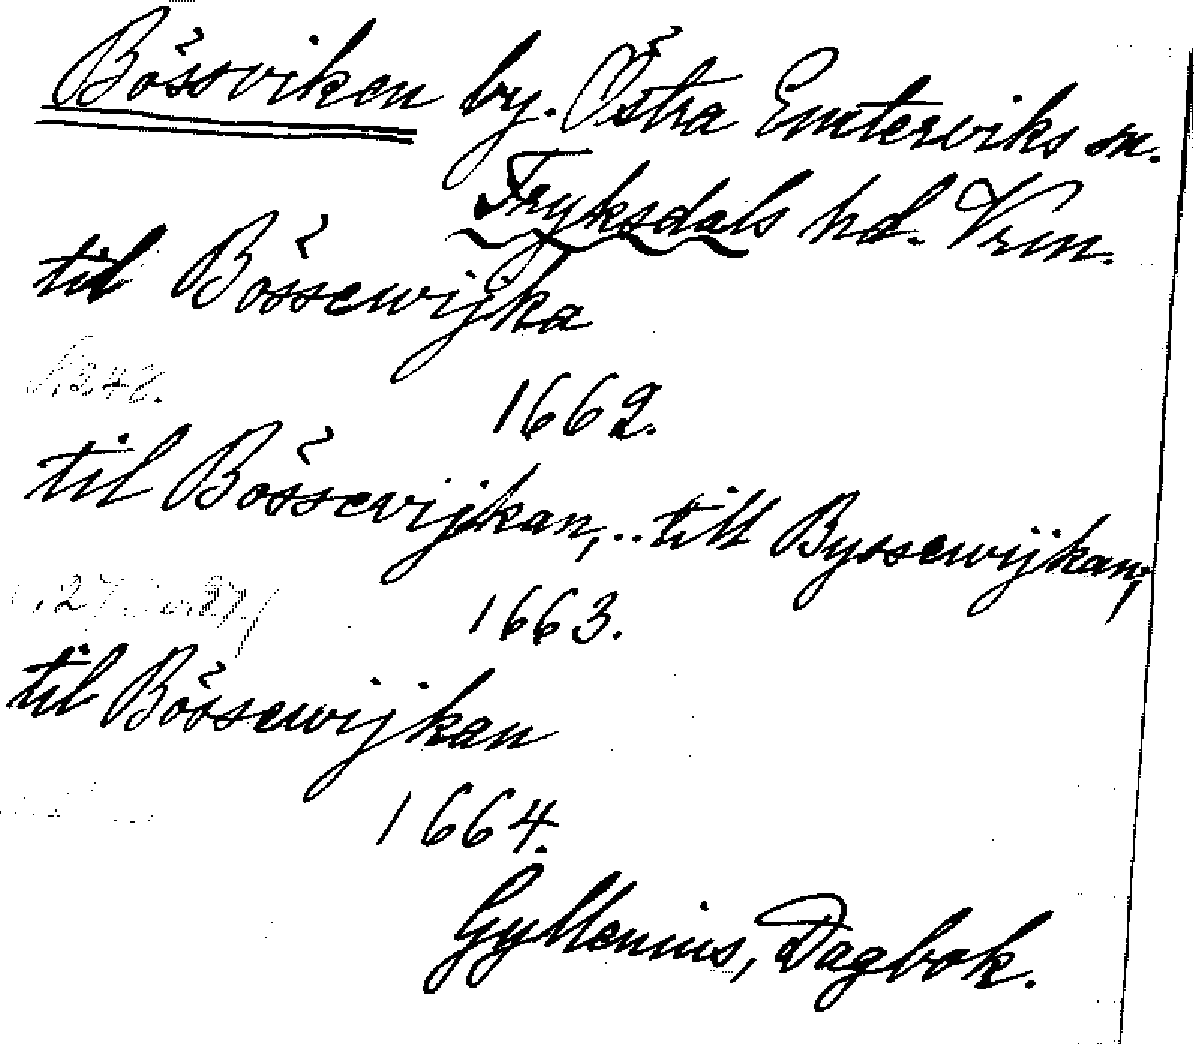 Bössviken by. Östra Emterviks sn.
Fryksdals hd. Vrm.
til Bössewijka
1662.
til Bössevijkan,.. till Byssewijkan,
1663.
til Bössewijkan
1664.
Gyllenius, Dagbok.